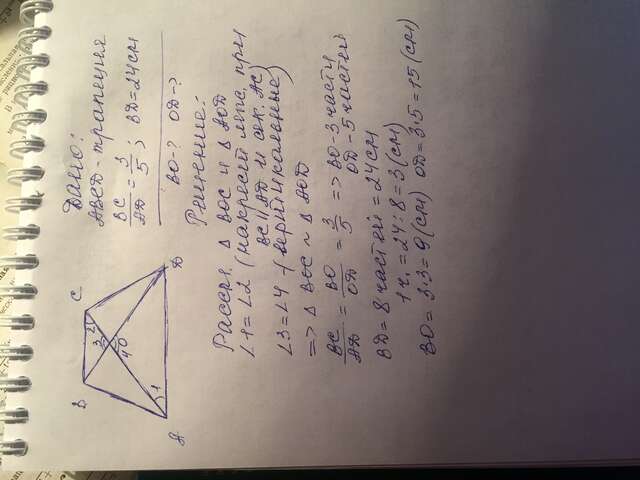 Дано:
ABCD - трапеция
BC/AD = 3/5; BD = 24 см
BO - ? OD - ?
Решение:
B
C
2
3
O
4
1
A
D
Рассм. Δ BOC и Δ AOD
∠1 = ∠2 (накрест леж. при
BC || AD и сек. AC)
∠3 = ∠4 (вертикальные)
=> Δ BOC ~ Δ AOD
BC/AD = BO/OD = 3/5 => BO - 3 части
OD - 5 частей
BD = 8 частей = 24 см
1 ч. = 24 : 8 = 3 (см)
BO = 3·3 = 9 (см) OD = 3·5 = 15 (см)